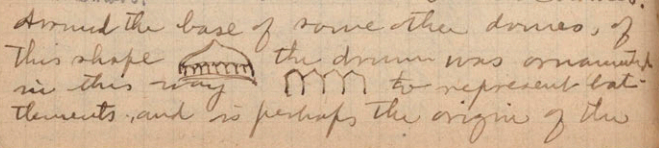 Around the base of some other domes, of
this shape the drum was ornamented
in this way to represent bat-
tlements, and is perhaps the origin of the